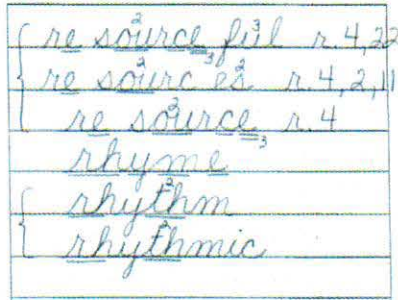 re source ful r. 4, 22
re sourc es r. 4, 2, 11
re source r. 4
rhyme
rhythm
rhythmic